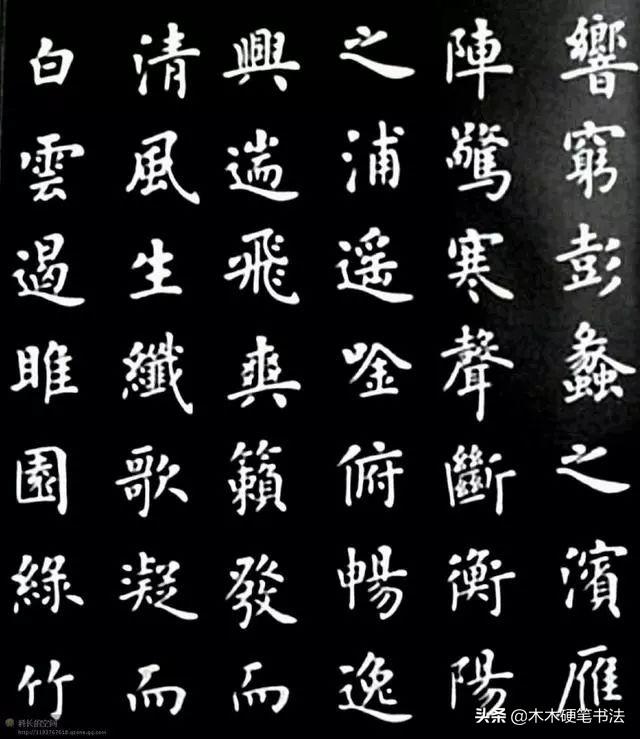 響窮彭蠡之濱雁
陣驚寒聲斷衡陽
之浦遥唫俯暢逸
興遄飛爽籟發而
清風生纖歌凝而
白雲遏睢園綠竹
科长的空间
http://1193767618.qzone.qq.com
头条 @木木硬笔书法